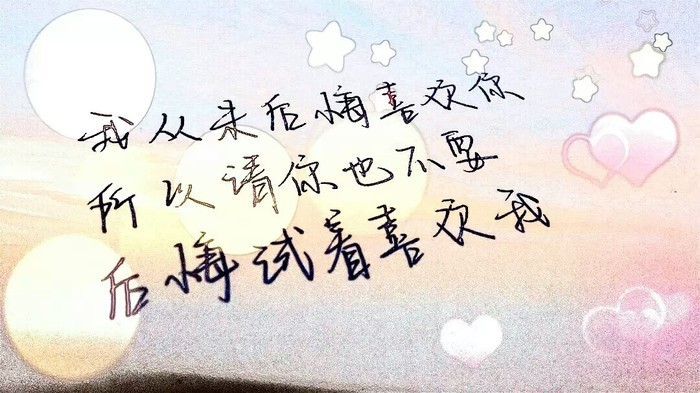 我从未后悔喜欢你
所以请你也不要
后悔试着喜欢我